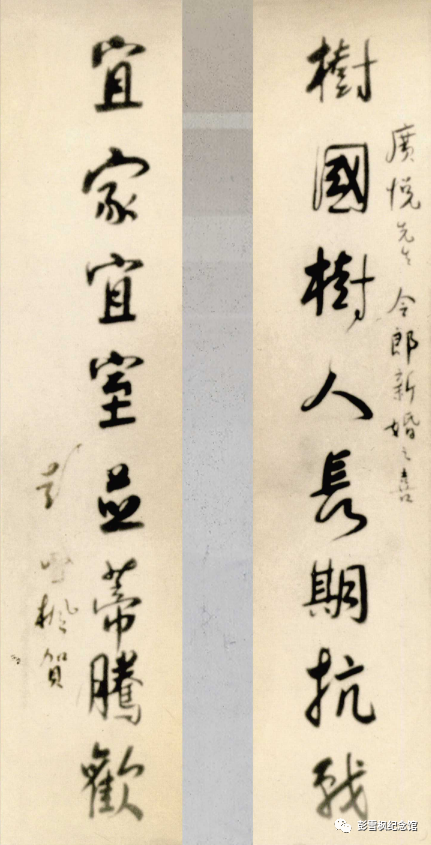 廣悦先生令郎新婚之喜
樹國樹人長期抗戰
宜家宜室並蒂騰歡
彭雪楓賀
彭雪枫纪念馆